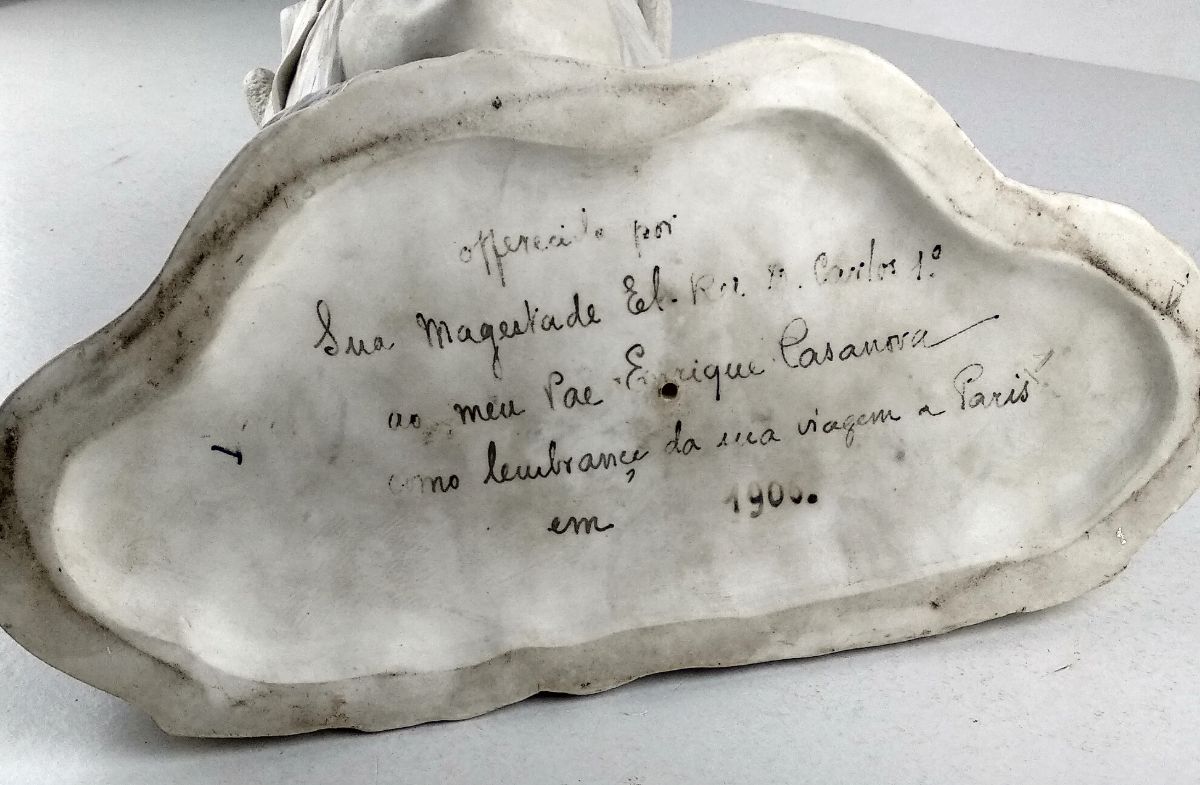 offerecido por
Sua Magestade El-Rei D. Carlos 1º
ao meu Pae Enrique Casanova
como lembrança da sua viagem a Paris
em 1900.